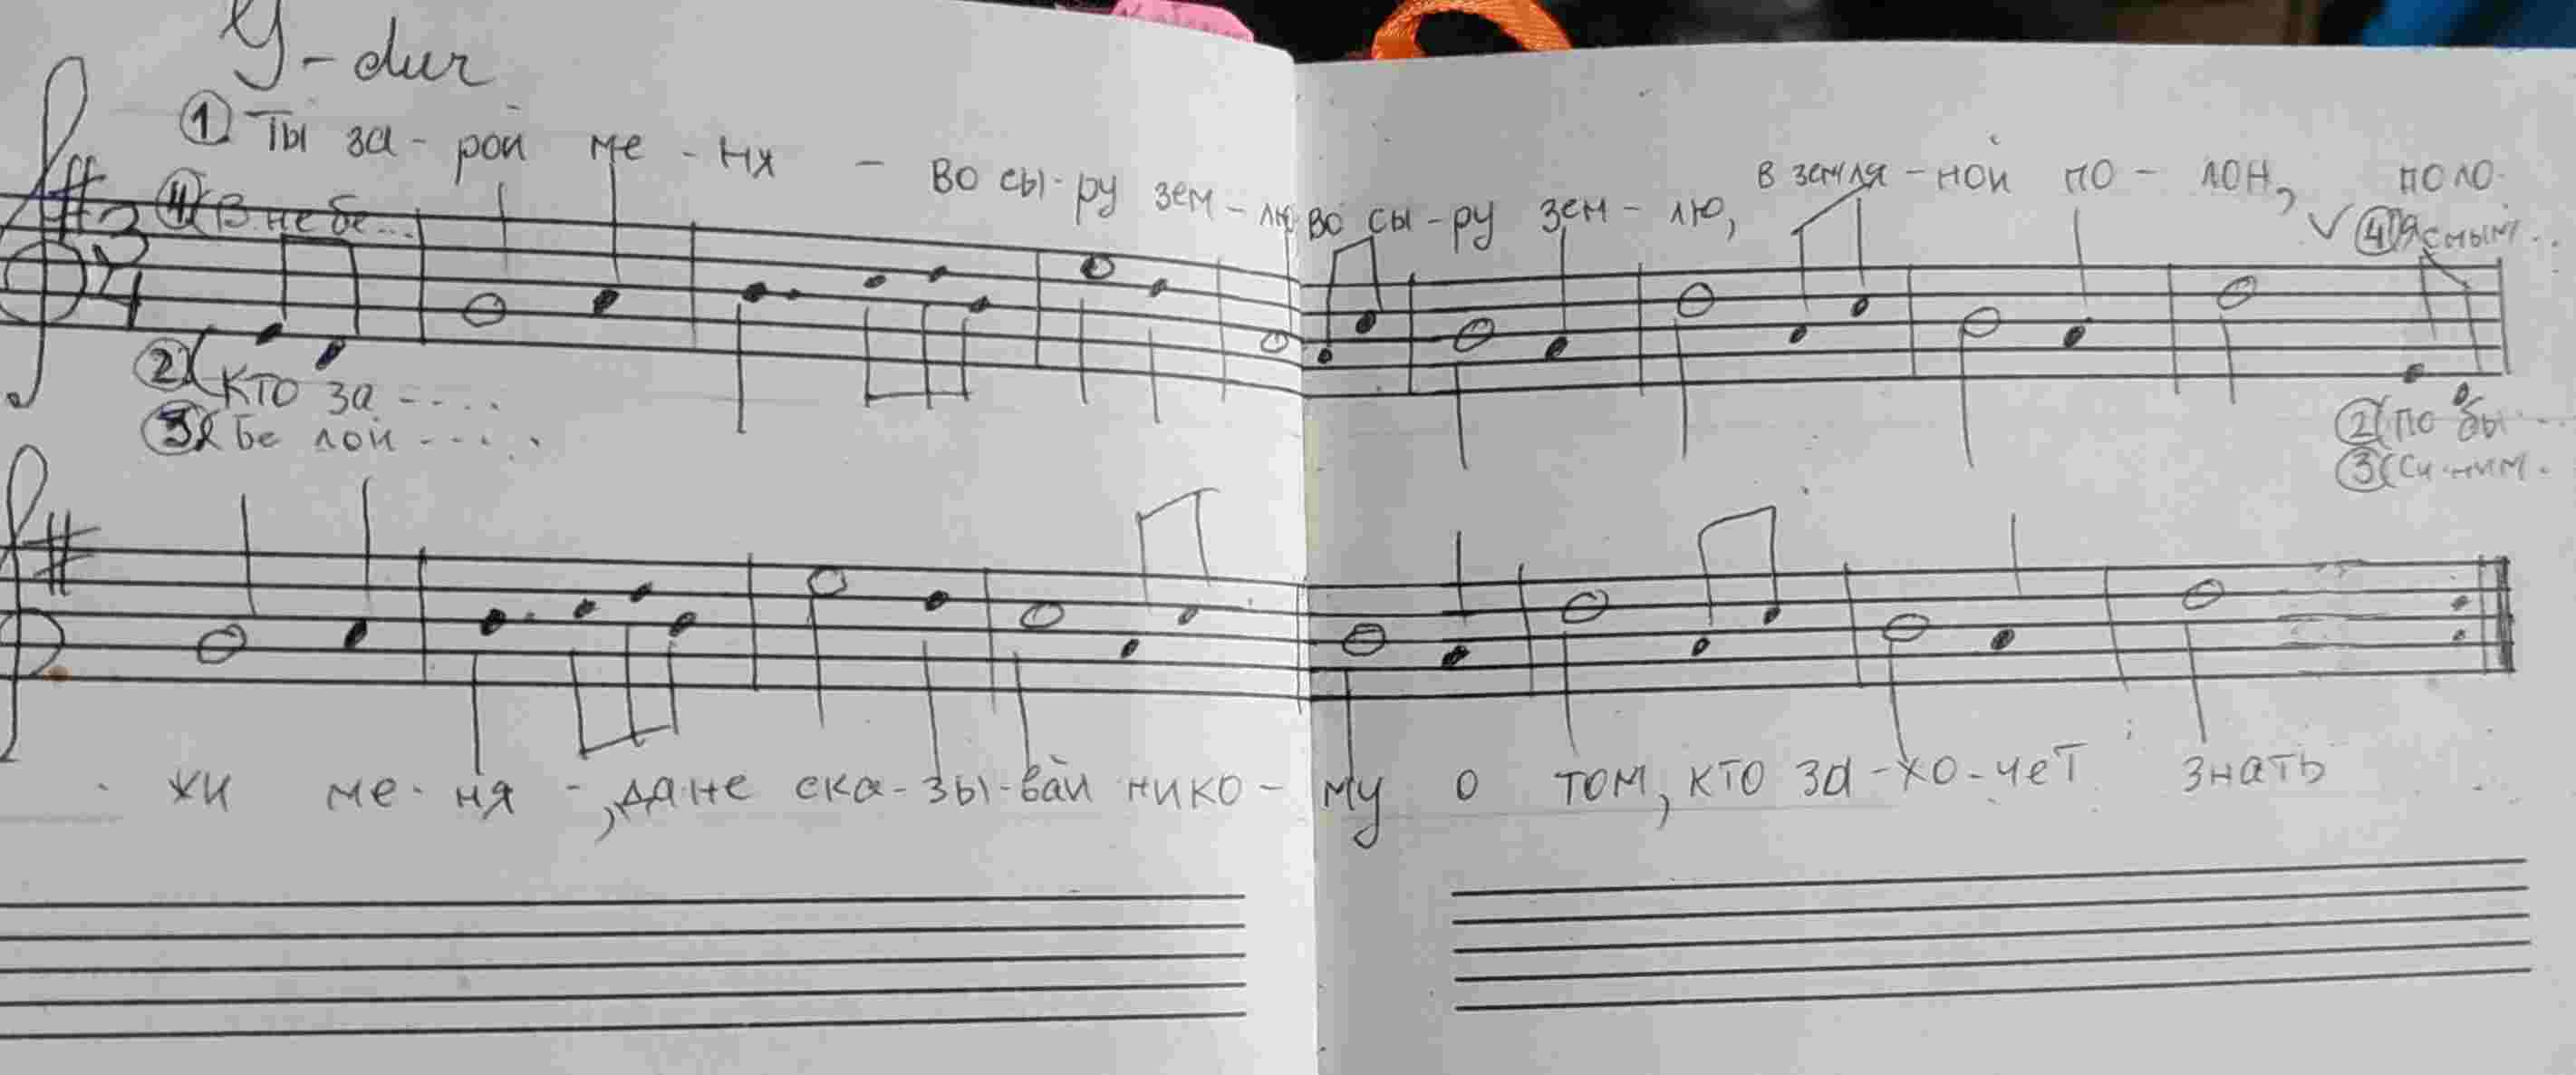 G-dur
① Ты за-рой ме-ня - во сы-ру зем-лю во сы-ру зем-лю, в земля-ной по-лон, поло-
④ В небе... ④ Я смым..
3
4
② Кто за ----
③ Бе лой -----
② По бы ---
③ Си-ним.
жи ме-ня -, да не ска-зы-вай нико-му о том, кто за-хо-чет знать